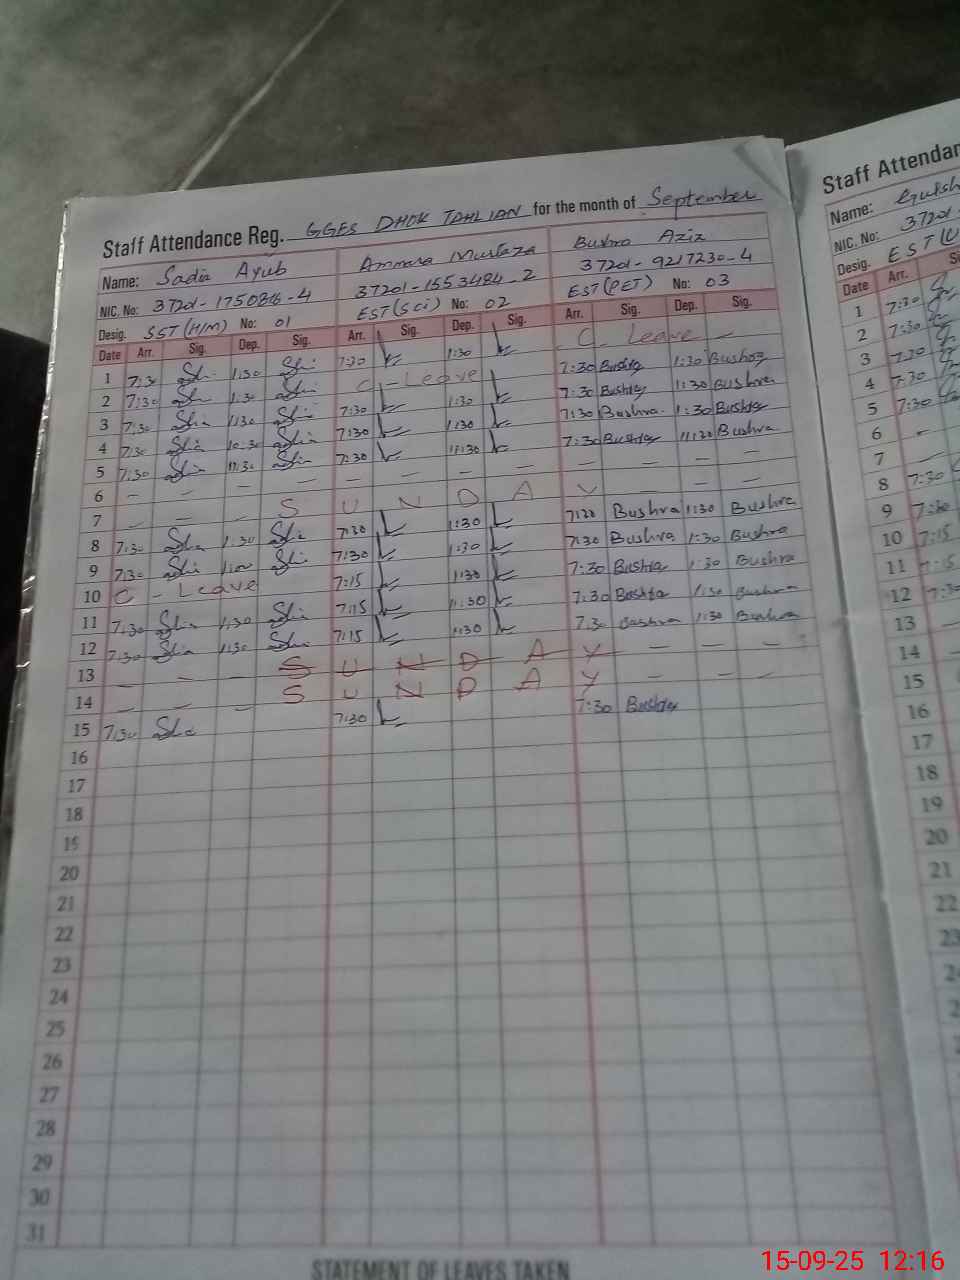 Staff Attendance Reg. GGES DHOK TAHLIAN for the month of September
Name: Sadia Ayub Ammara Murtaza Bushra Aziz
NIC. No: 37201-1750816-4 37201-1553484-2 37201-9217230-4
Desig. SST (H/M) No: 01 EST (Sci) No: 02 EST (PET) No: 03
Date Arr. Sig. Dep. Sig. Arr. Sig. Dep. Sig. Arr. Sig. Dep. Sig.
1 7:30 1:30 7:30 1:30 C- Leave -
2 7:30 1:30 C - Leave 7:30 Bushra 1:30 Bushra
3 7:30 1:30 7:30 1:30 7:30 Bushra 1:30 Bushra
4 7:30 10:30 7:30 1:30 7:30 Bushra 1:30 Bushra
5 7:30 11:30 7:30 11:30 7:30 Bushra 11:30 Bushra
6 - - - - - - - - - - - -
7 - - - S U N D A Y - - -
8 7:30 1:30 7:30 1:30 7:30 Bushra 1:30 Bushra
9 7:30 7:30 1:30 7:30 Bushra 1:30 Bushra
10 C - Leave 7:15 1:30 7:30 Bushra 1:30 Bushra
11 7:30 1:30 7:15 1:30 7:30 Bushra 1:30 Bushra
12 7:30 1:30 7:15 1:30 7:30 Bushra 1:30 Bushra
13 - - - S U N D A Y - - -
14 - - - S U N D A Y - - -
15 7:30 7:30 7:30 Bushra
16
17
18
19
20
21
22
23
24
25
26
27
28
29
30
31
STATEMENT OF LEAVES TAKEN
Staff Attendan
Name:
NIC. No: 37201-
Desig. EST
Date Arr.
1 7:30
2 7:30
3 7:30
4 7:30
5 7:30
6 -
7 -
8 7:30
9 7:30
10 7:15
11 7:15
12 7:30
13 -
14 -
15
16
17
18
19
20
21
22
23
15-09-25 12:16